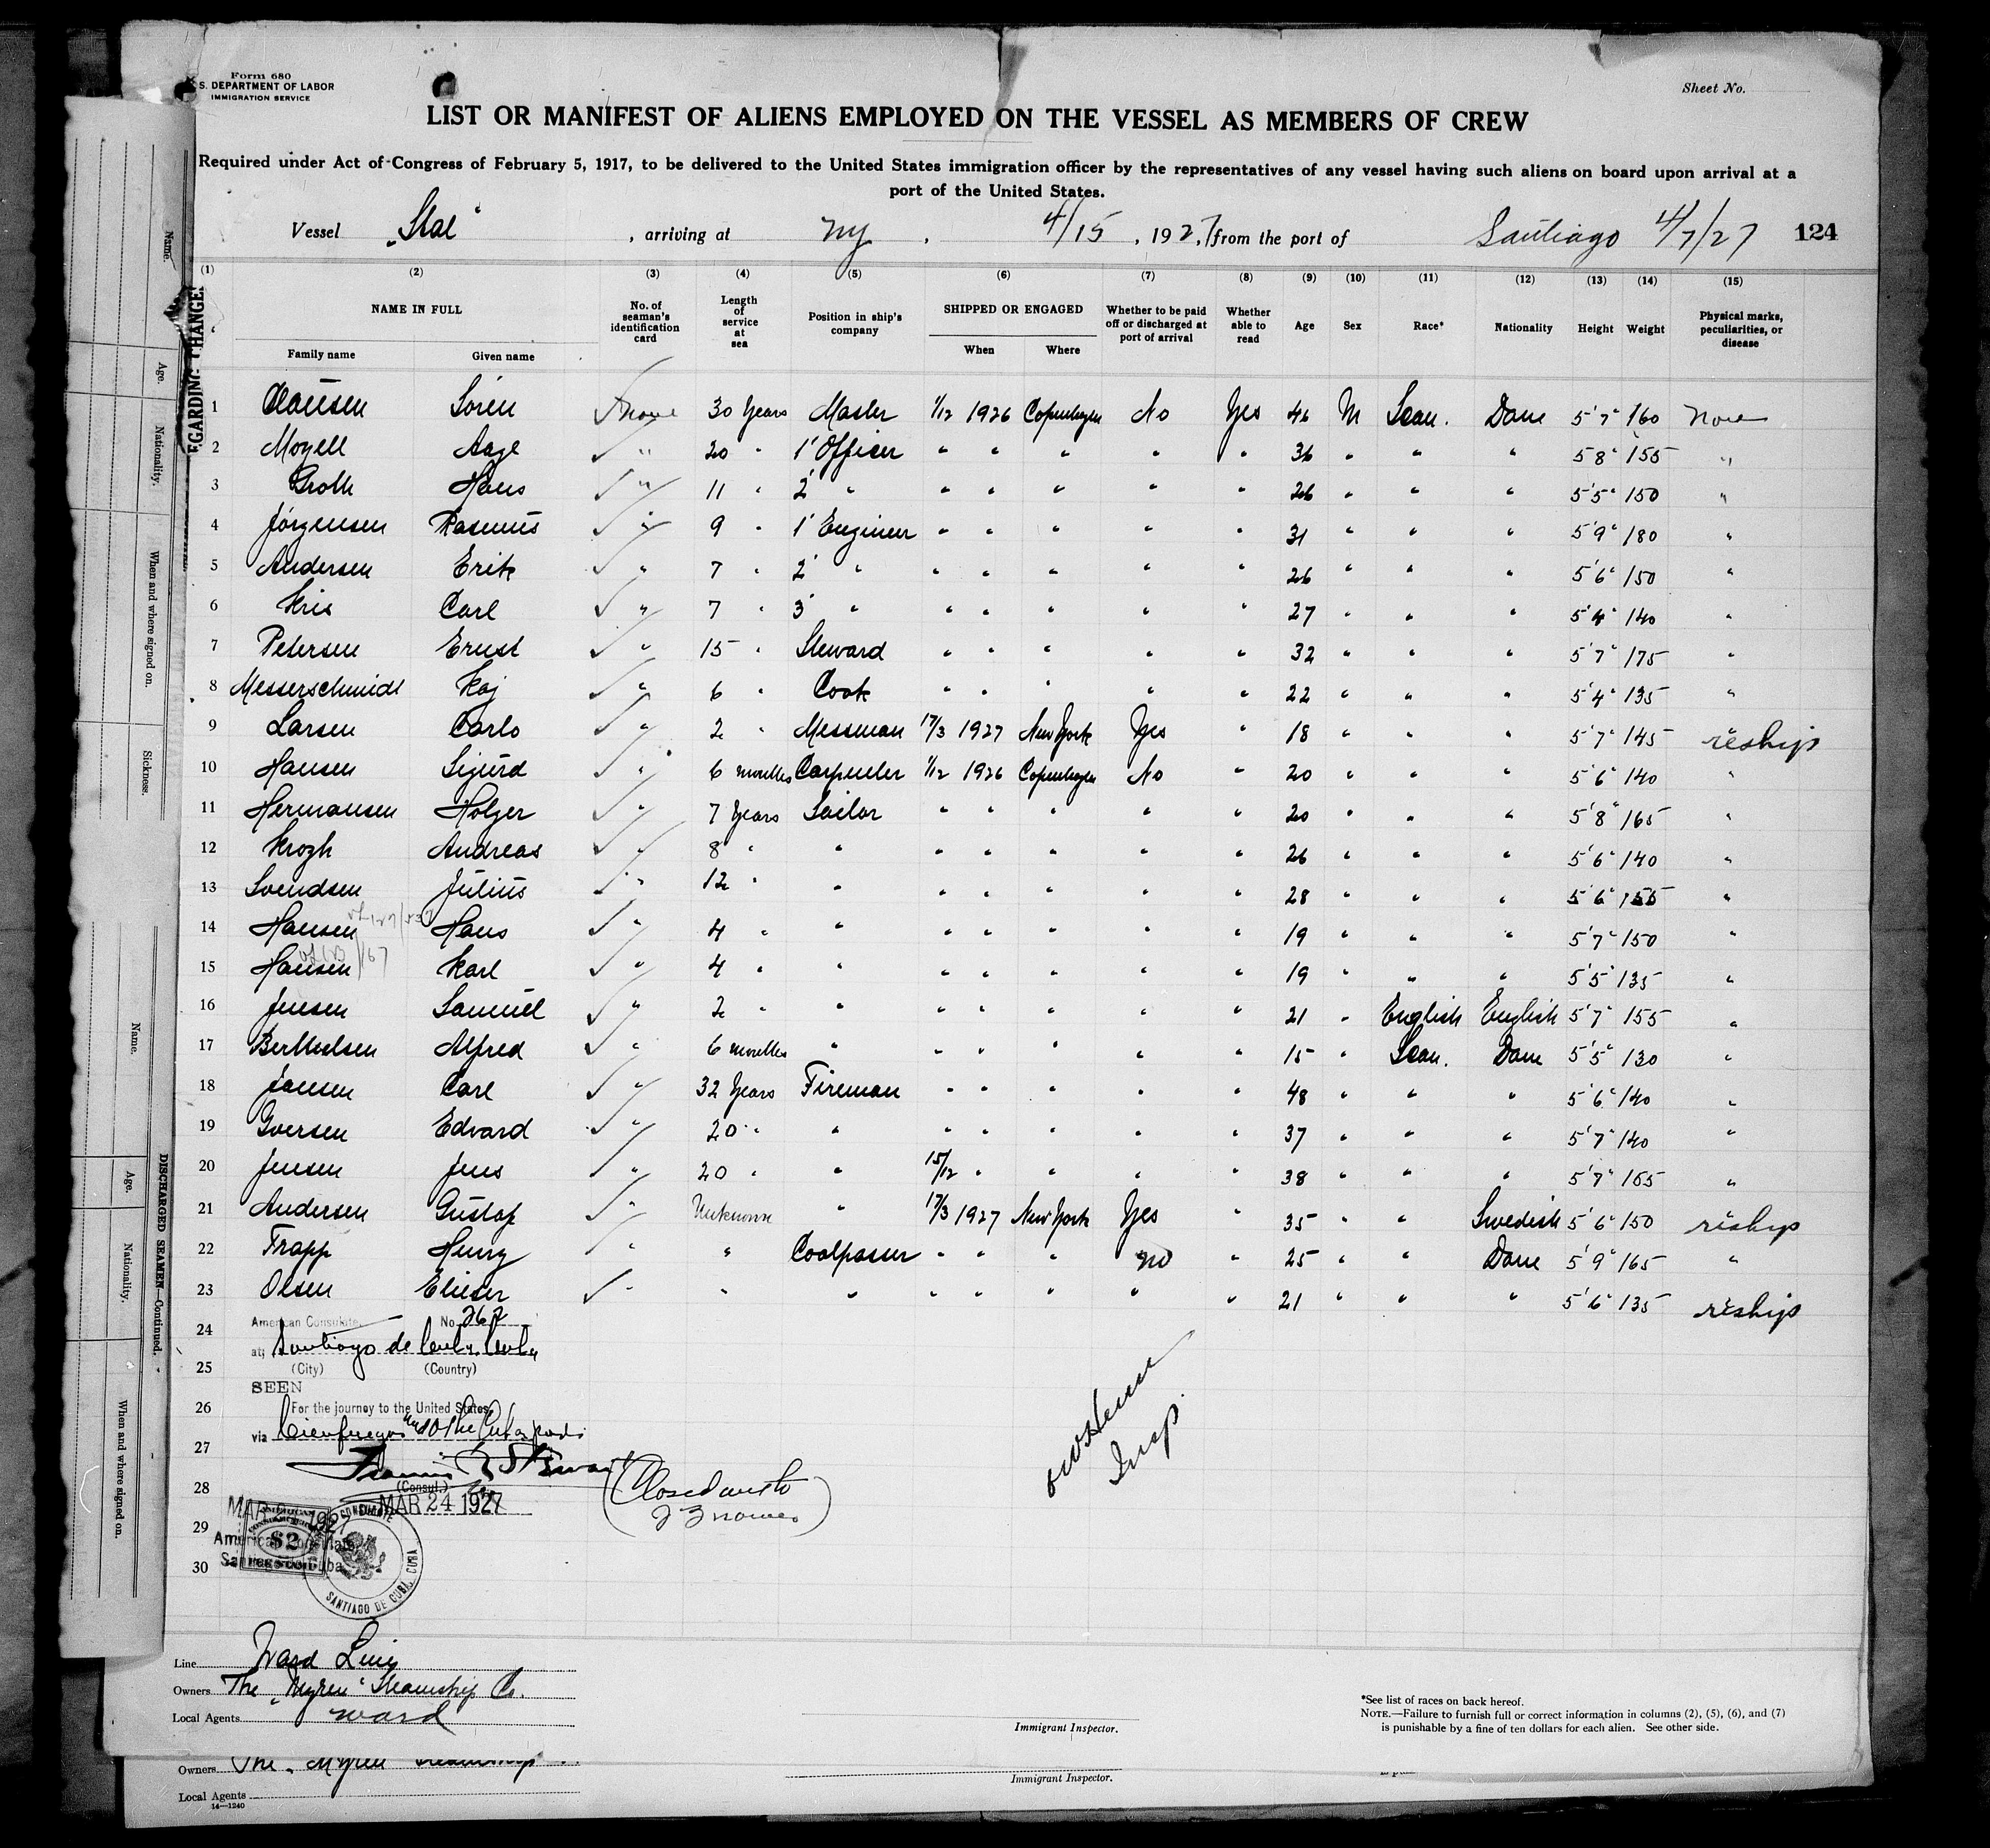 Form 680
S. DEPARTMENT OF LABOR
IMMIGRATION SERVICE
Sheet No.
LIST OR MANIFEST OF ALIENS EMPLOYED ON THE VESSEL AS MEMBERS OF CREW
Required under Act of Congress of February 5, 1917, to be delivered to the United States immigration officer by the representatives of any vessel having such aliens on board upon arrival at a
port of the United States.
Vessel "Stal" , arriving at ny , 4/15 , 1927, from the port of Santiago 4/7/27 124
(1) (2) (3) (4) (5) (6) (7) (8) (9) (10) (11) (12) (13) (14) (15)
NAME IN FULL No. of seaman's identification card Length of service at sea Position in ship's company SHIPPED OR ENGAGED Whether to be paid off or discharged at port of arrival Whether able to read Age Sex Race* Nationality Height Weight Physical marks, peculiarities, or disease
Family name Given name When Where
1 Clausen Sören none 30 Years Master 1/12 1926 Copenhagen No Yes 46 M Scan. Dane 5'7" 160 none
2 Moyell Aage " 20 " 1' Officer " " " " " 36 " " " 5'8" 155 "
3 Groth Hans " 11 " 2' " " " " " " 26 " " " 5'5" 150 "
4 Jörgensen Rasmus " 9 " 1' Engineer " " " " " 31 " " " 5'9" 180 "
5 Andersen Erik " 7 " 2' " " " " " " 26 " " " 5'6" 150 "
6 Kris Carl " 7 " 3' " " " " " " 27 " " " 5'4" 140 "
7 Petersen Ernst " 15 " Steward " " " " " 32 " " " 5'7" 175 "
8 Messerschmidt Kaj " 6 " Cook " " " " " 22 " " " 5'4" 135 "
9 Larsen Carlo " 2 " Messman 17/3 1927 New York Yes " 18 " " " 5'7" 145 reships
10 Hansen Sigurd " 6 months Carpenter 1/12 1926 Copenhagen No " 20 " " " 5'6" 140 "
11 Hermansen Holger " 7 Years Sailor " " " " " 20 " " " 5'8" 165 "
12 Krogh Andreas " 8 " " " " " " " 26 " " " 5'6" 140 "
13 Svendsen Julius " 12 " " " " " " " 28 " " " 5'6" 155 "
14 Hansen Hans " 4 " " " " " " " 19 " " " 5'7" 150 "
15 Hansen Karl " 4 " " " " " " " 19 " " " 5'5" 135 "
16 Jensen Samuel " 2 " " " " " " " 21 " English English 5'7" 155 "
17 Berthelsen Alfred " 6 months " " " " " " 15 " Scan. Dane 5'5" 130 "
18 Jansen Carl " 32 Years Fireman " " " " " 48 " " " 5'6" 140 "
19 Iversen Edvard " 20 " " " " " " " 37 " " " 5'7" 140 "
20 Jensen Jens " 20 " " 15/12 " " " " 38 " " " 5'7" 165 "
21 Andersen Gustaf " Unknown " 17/3 1927 New York Yes " 35 " " Swedish 5'6" 150 reships
22 Trapp Henry " " Coalpasser " " " no " 25 " " Dane 5'9" 165 "
23 Olsen Elieser " " " " " " " " 21 " " " 5'6" 135 reships
24 American Consulate No. 262
at Santiago de Cuba, Cuba
25 (City) (Country)
SEEN
26 For the journey to the United States
via Cienfuegos and other Cuban ports
27
(Consul.)
28 MAR 24 1927
(Closed with
23 names)
Insp.
29 American Consulate
30 Santiago de Cuba
$2
SANTIAGO DE CUBA, CUBA
Line Ward Line
Owners The "Myren" Steamship Co.
Local Agents Ward
Immigrant Inspector.
*See list of races on back hereof.
NOTE.—Failure to furnish full or correct information in columns (2), (5), (6), and (7)
is punishable by a fine of ten dollars for each alien. See other side.
Owners The "Myren" Steamship
Immigrant Inspector.
Local Agents
14—1240
Name.
Age.
Nationality.
When and where signed on.
Sickness.
Name.
Age.
Nationality.
When and where signed on.
DISCHARGED SEAMEN—Continued.